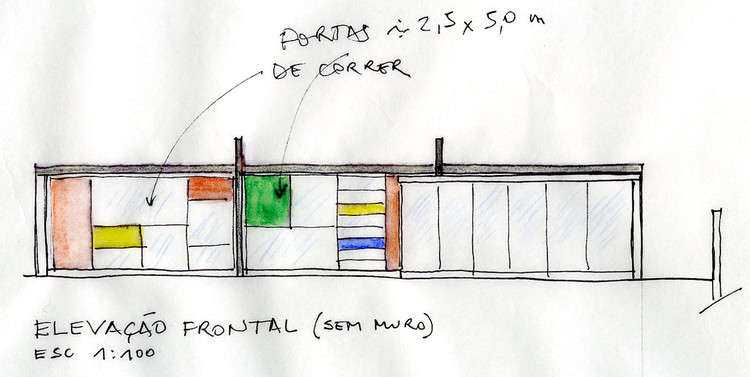 PORTAS 2,5 x 5,0 m
DE CORRER
ELEVAÇÃO FRONTAL (SEM MURO)
ESC 1:100